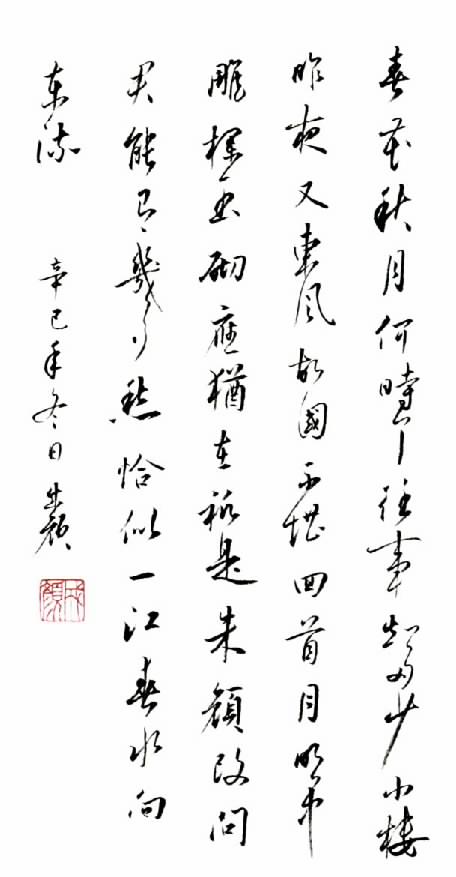 春花秋月何時了往事知多少小樓
昨夜又東風故國不堪回首月明中
雕欄玉砌應猶在祗是朱顏改問
君能有幾多愁恰似一江春水向
東流 辛巳年冬日